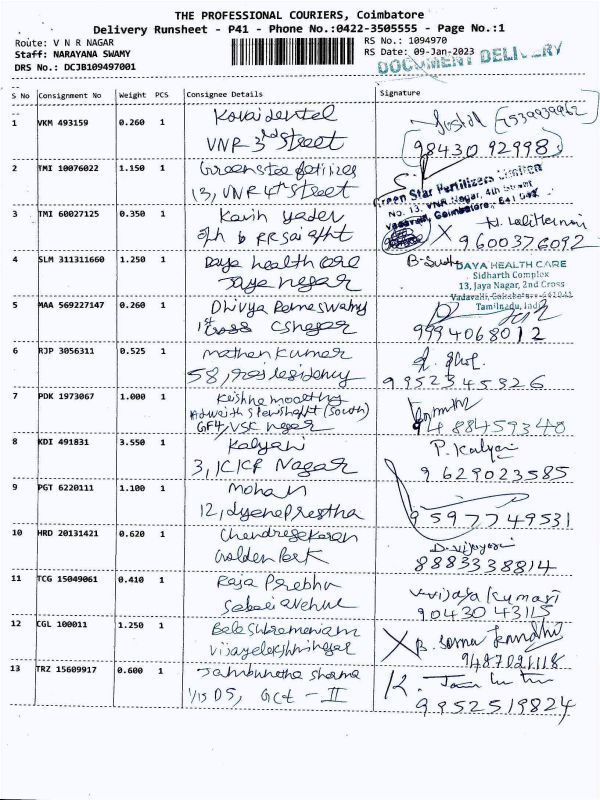 THE PROFESSIONAL COURIERS, Coimbatore
Delivery Runsheet - P41 - Phone No.:0422-3505555 - Page No.:1
Route: V N R NAGAR
RS No.: 1094970
Staff: NARAYANA SWAMY
RS Date: 09-Jan-2023
DRS No.: DCJB109497001
DOCUMENT DELIVERY
S No Consignment No Weight PCS Consignee Details Signature
1 VKM 493159 0.260 1 Kovaidental
7539939962
VNR 3rd Street
98430 92998
2 TMI 10076022 1.150 1 Greenstar fertilizes
13, VNR 4th Street
Green Star Fertilizers Limited
No. 13, VNR Nagar, 4th Street
Vadavalli, Coimbatore - 641 041
3 TMI 60027125 0.350 1 Kavin yadav
RR Sai apht
X 9600376092
4 SLM 311311660 1.250 1 Daya health care
Jaya nagar
DAYA HEALTH CARE
Sidharth Complex
13, Jaya Nagar, 2nd Cross
Vadavalli, Coimbatore-641041
Tamilnadu, India
5 MAA 569227147 0.260 1 Dhivya Rameswamy
1st Cross CSnagar
9994068012
6 RJP 3056311 0.525 1 mathan kumar
58, residency
9952345826
7 PDK 1973067 1.000 1 Krishna moorthy
(South)
GF4, VSK nagar
9488459340
8 KDI 491831 3.550 1 Kalyani
P. Kalyani
3, KKP Nagar
9629023585
9 PGT 6220111 1.100 1 Mohan
12, Iyenaprestha
9597749531
10 HRD 20131421 0.620 1 Chandrasekaran
D. Vijayasri
Golden Park
8883338814
11 TCG 15049061 0.410 1 Raja Prabhu
V. Vijaya Kumari
Sabari avenue
90430 43115
12 CGL 100011 1.250 1 Balasubramaniam
X B. Soma
Vijayalakshminagar
9487021118
13 TRZ 15609917 0.600 1 Jambunatha Sharma
1/15 DS, GCT - II
9952519824